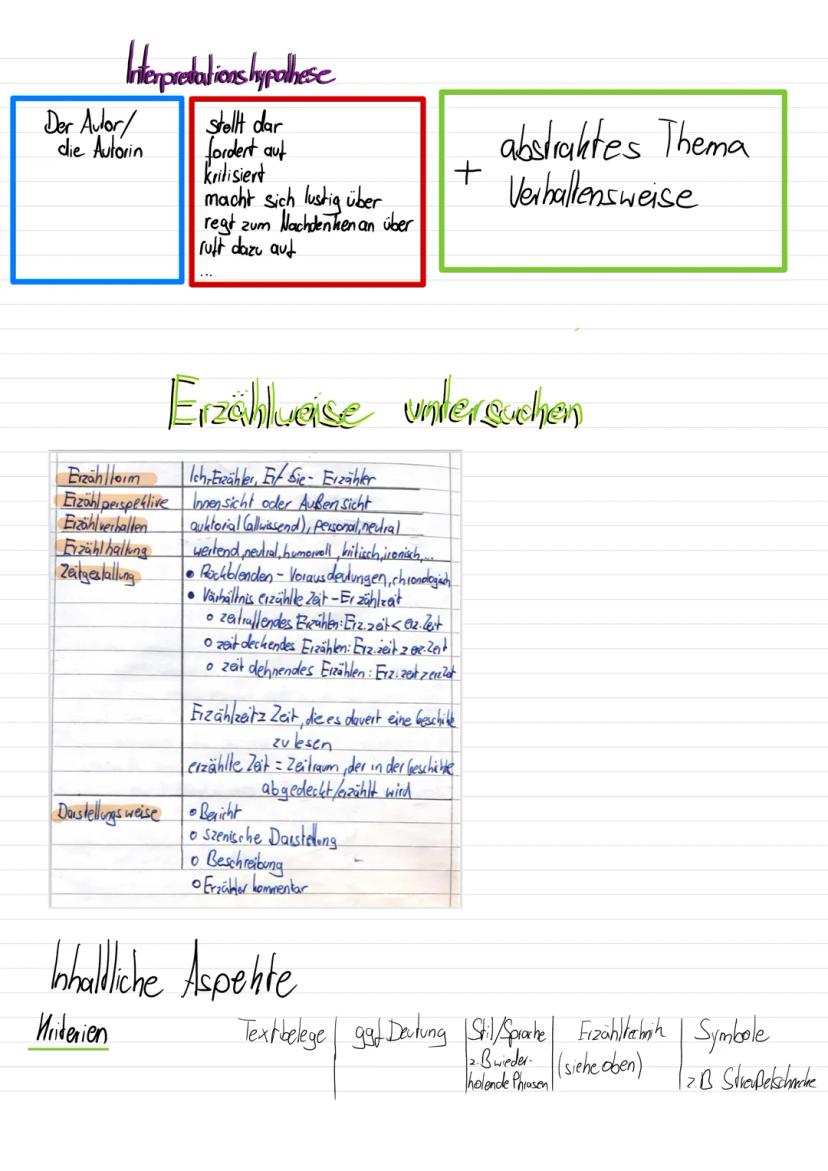 Interpretationshypothese
Der Autor/
die Autorin
stellt dar
fordert auf
kritisiert
macht sich lustig über
regt zum Nachdenken an über
ruft dazu auf
...
+ abstraktes Thema
Verhaltensweise
Erzählweise untersuchen
Erzählform Ich-Erzähler, Er/Sie-Erzähler
Erzählperspektive Innensicht oder Außensicht
Erzählverhalten auktorial (allwissend), personal, neutral
Erzählhaltung wertend, neutral, humorvoll, kritisch, ironisch,...
Zeitgestaltung • Rückblenden - Vorausdeutungen, chronologisch
• Verhältnis erzählte Zeit - Erzählzeit
o zeitraffendes Erzählen: Erz.zeit < erz. Zeit
o zeitdeckendes Erzählen: Erz.zeit = erz. Zeit
o zeitdehnendes Erzählen: Erz.zeit > erz. Zeit
Erzählzeit = Zeit, die es dauert eine Geschichte
zu lesen
erzählte Zeit = Zeitraum, der in der Geschichte
abgedeckt/erzählt wird
Darstellungsweise • Bericht
o szenische Darstellung
o Beschreibung
o Erzählerkommentar
Inhaltliche Aspekte
Kriterien Textbelege ggf. Deutung Stil/Sprache Erzähltechnik Symbole
z.B wieder- (siehe oben)
holende Phrasen z.B Streußelschnecke